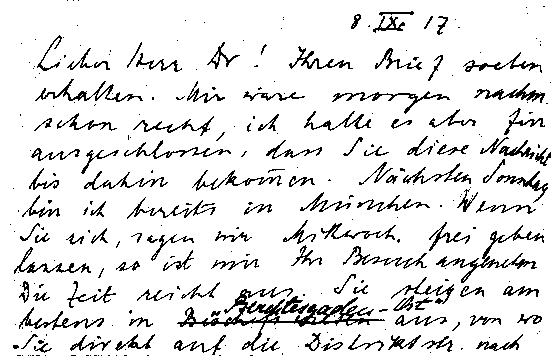 8. IX. 17.
Lieber Herr Dr! Ihren Brief soeben
erhalten. Mir wäre morgen nachm
schon recht, ich halte es aber für
ausgeschlossen, dass Sie diese Nachricht
bis dahin bekommen. Nächsten Sonntag
bin ich bereits in München. Wenn
Sie sich, sagen wir Mittwoch, frei geben
lassen, so ist mir Ihr Besuch angenehm
Die Zeit reicht aus. Sie steigen am
"Berchtesgaden-Ost"
bestens in aus, von wo
Sie direkt auf die Distriktstr. nach